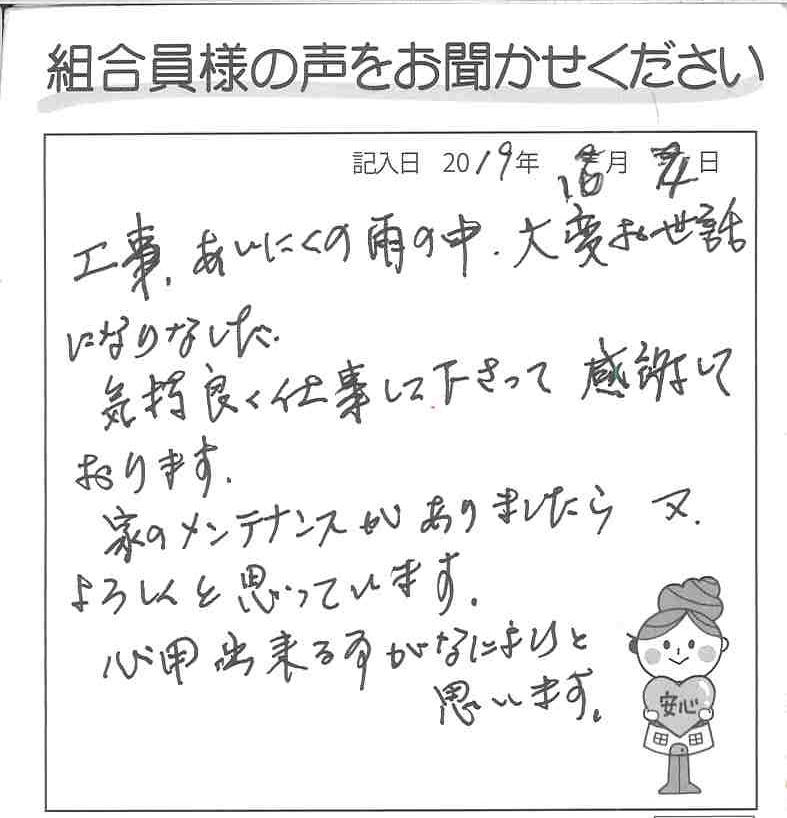 組合員様の声をお聞かせください
記入日 2019年 10月 4日
工事、あいにくの雨の中、大変お世話
になりなした。
気持良く仕事して下さって 感謝して
おります。
家のメンテナンスがありましたら 又、
よろしくと思っています。
心用出来る事がなによりと
思います。
安心